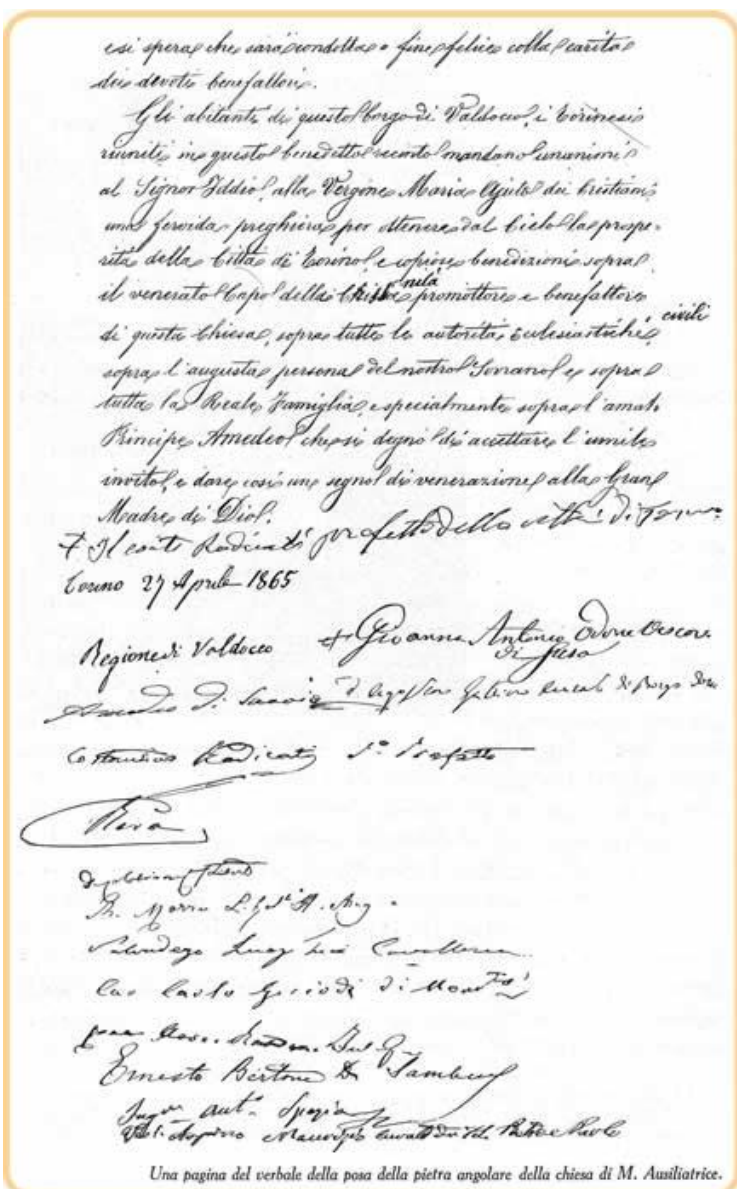 e si spera che sarà condotta a fine felice colla carità
dei devoti benefattori.
Gli abitanti di questo borgo di Valdocco, i Torinesi
riuniti in questo benedetto recinto mandano unanimi
al Signor Iddio, alla Vergine Maria Ajuto dei Cristiani
una fervida preghiera per ottenere dal Cielo la prospe-
rità della Città di Torino, e copiose benedizioni sopra
nità
il venerato Capo della promottore e benefattore
civili
di questa Chiesa, sopra tutte le autorità Ecclesiastiche,
sopra l'augusta persona del nostro Sovrano e sopra
tutta la Reale Famiglia, e specialmente sopra l'amato
Principe Amedeo che si degnò di accettare l'umile
invito, e dare così un segno di venerazione alla Gran
Madre di Dio.
Il conte Radicati prefetto della città di
Torino 27 Aprile 1865
Regione di Valdocco + Giovanni Antonio Odone Vescovo
di Susa
Amedeo di Savoia di Borgo Dora
Costantino Radicati Prefetto
Rorà
Morra
Luigi Cavalleria
Cav Carlo di
Ernesto Bertone Di Sambuy
Ant° Spezia
Maurizio Pietro e Paolo
Una pagina del verbale della posa della pietra angolare della chiesa di M. Ausiliatrice.